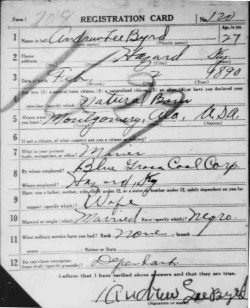 708 REGISTRATION CARD No. 120
1 Name in full Andrew Lee Byrd Age, in yrs 27
2 Home address Hazard Ky
3 Date of birth Feb 2 1890
4
Natural Born
5 Where were you born? Montgomery, Ala, USA
6 If not a citizen, of what country are you a citizen or subject?
7 What is your present trade, occupation, or office? Miner
8 By whom employed? Blue Grass Coal Corp
Where employed? Hazard, Ky
9 Have you a father, mother, wife, child under 12, or a sister or brother under 12, solely dependent on you for support (specify which)?
Wife
10 Married or single (which)? Married Race (specify which)? Negro
11 What military service have you had? Rank None branch
years Nation or State
12 Do you claim exemption from draft (specify grounds)? Dependents
I affirm that I have verified above answers and that they are true.
Andrew Lee Byrd